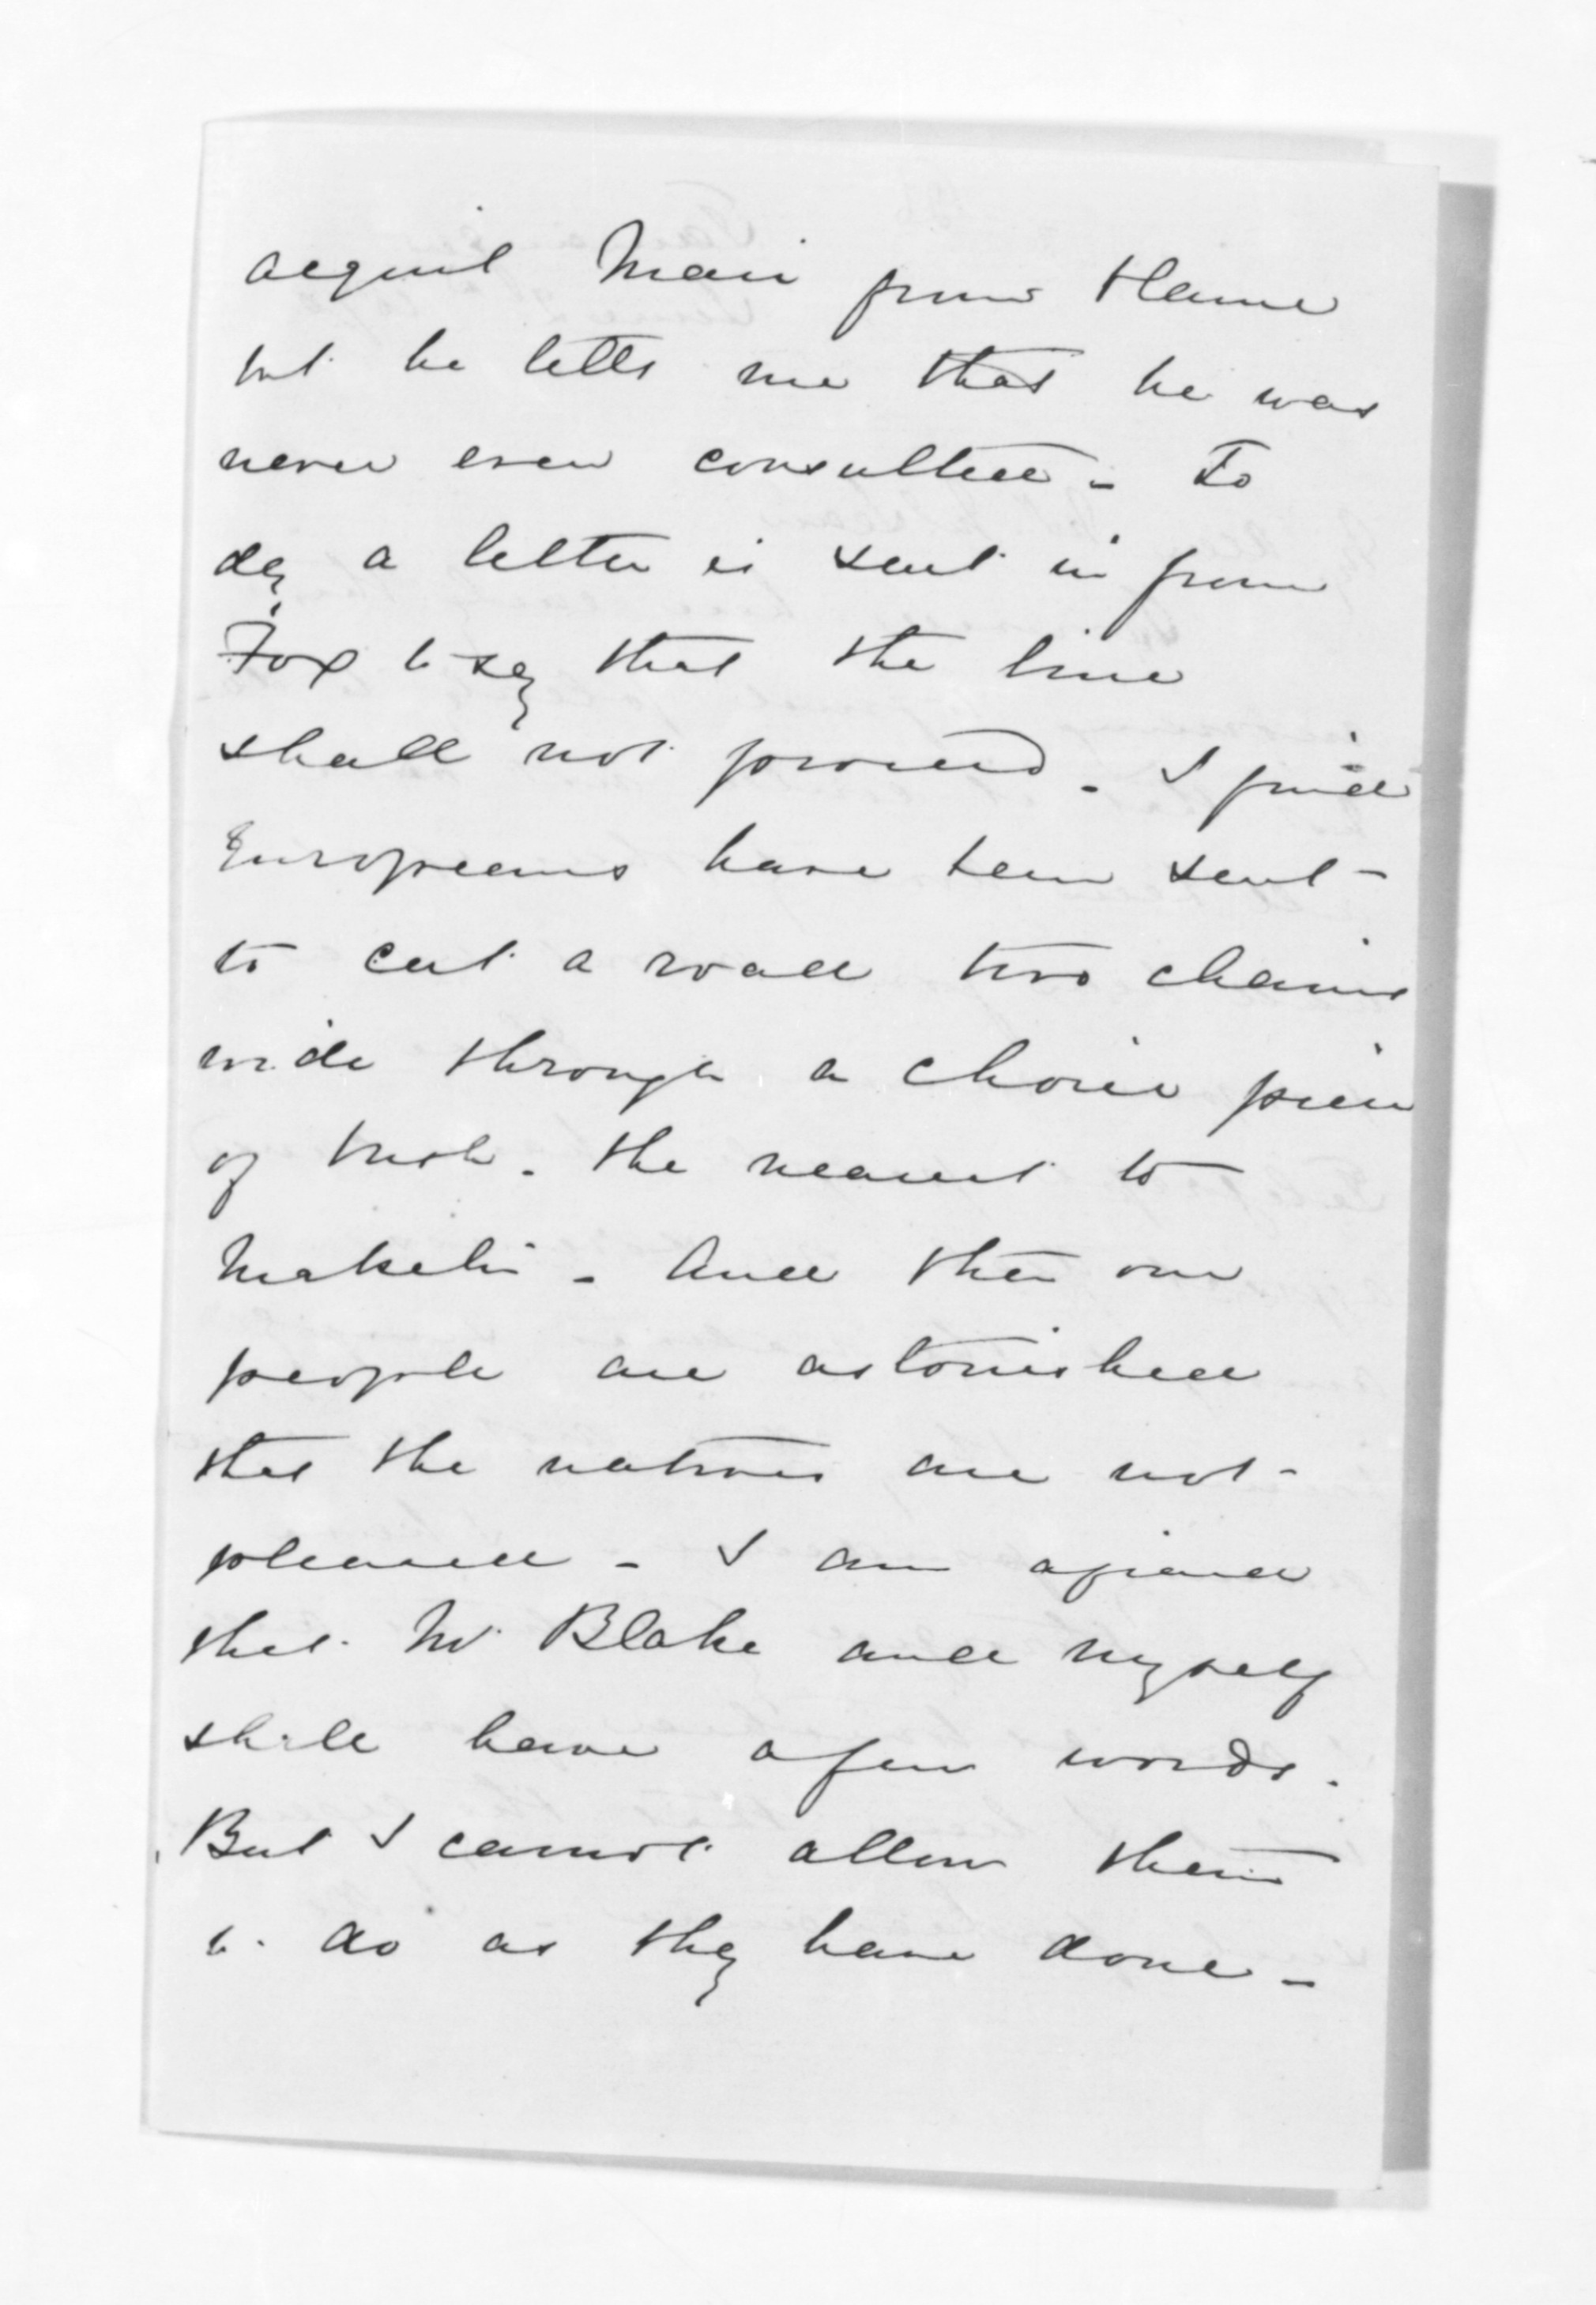 acquit Mair from blame
but he tells me that he was
never even consulted - To
day a letter is sent in from
Fox to say that the line
shall not proceed. I find
Europeans have been sent
to cut a road two chains
wide through a choice piece
of bush. the nearest to
Maketu - And then our
people are astonished
that the natives are not
pleased - I am afraid
that Mr Blake and myself
shall have a few words.
But I cannot allow them
to do as they have done -